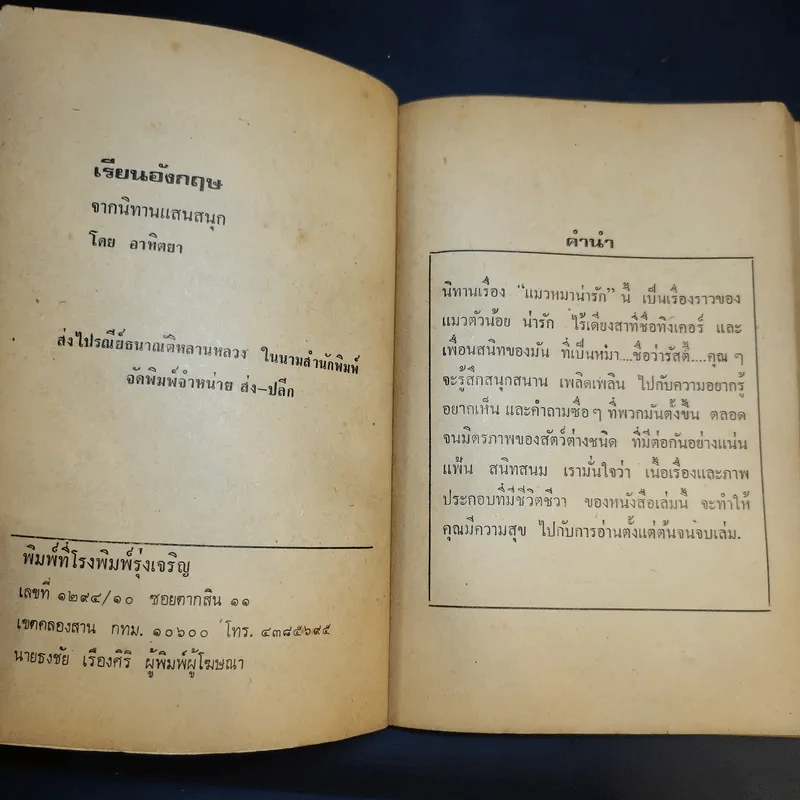 เรียนอังกฤษ
จากนิทานแสนสนุก
โดย อาทิตยา
ส่งไปรณีย์ธนาณัติหลานหลวง ในนามสำนักพิมพ์
จัดพิมพ์จำหน่าย ส่ง-ปลีก
พิมพ์ที่โรงพิมพ์รุ่งเจริญ
เลขที่ ๑๒๙๔/๑๐ ซอยตากสิน ๑๑
เขตคลองสาน กทม. ๑๐๖๐๐ โทร. ๔๓๘๕๖๙๕
นายธงชัย เรืองศิริ ผู้พิมพ์ผู้โฆษณา
คำนำ
นิทานเรื่อง “แมวหมาน่ารัก” นี้ เป็นเรื่องราวของ
แมวตัวน้อย น่ารัก ไร้เดียงสาที่ชื่อทิงเคอร์ และ
เพื่อนสนิทของมัน ที่เป็นหมา....ชื่อว่ารัสตี้....คุณ ๆ
จะรู้สึกสนุกสนาน เพลิดเพลิน ไปกับความอยากรู้
อยากเห็น และคำถามซื่อ ๆ ที่พวกมันตั้งขึ้น ตลอด
จนมิตรภาพของสัตว์ต่างชนิด ที่มีต่อกันอย่างแน่น
แฟ้น สนิทสนม เรามั่นใจว่า เนื้อเรื่องและภาพ
ประกอบที่มีชีวิตชีวา ของหนังสือเล่มนี้ จะทำให้
คุณมีความสุข ไปกับการอ่านตั้งแต่ต้นจนจบเล่ม.